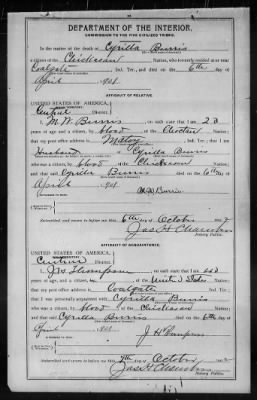 DEPARTMENT OF THE INTERIOR.
COMMISSION TO THE FIVE CIVILIZED TRIBES.
In the matter of the death of Cyrilla Burris
a citizen of the Chickasaw Nation, who formerly resided at or near
Coalgate, Ind. Ter., and died on the 6th day of
April, 1901.
AFFIDAVIT OF RELATIVE.
UNITED STATES OF AMERICA,
INDIAN TERRITORY,
Central District.
I, M. W. Burris, on oath state that I am 23
years of age and a citizen, by blood, of the Choctaw Nation;
that my post office address is Ind. Ter.; that I am
Husband of Cyrilla Burris
who was a citizen, by blood, of the Chickasaw Nation;
and that said Cyrilla Burris died on the 6th day of
April, 1901.
M. W. Burris
Subscribed and sworn to before me this 6th day of October 1902
Jas. H.
Notary Public.
AFFIDAVIT OF ACQUAINTANCE.
UNITED STATES OF AMERICA,
INDIAN TERRITORY,
Central District.
I, Jas Thompson, on oath state that I am
years of age, and a citizen of the United States
that my post office address is Coalgate, Ind. Ter.;
that I was personally acquainted with Cyrilla Burris
who was a citizen, by blood, of the Chickasaw Nation;
and that said Cyrilla Burris died on the 6th day of
April, 1901.
J H Thompson
Subscribed and sworn to before me this 7th day of October 1902
Jas. H.
Notary Public.